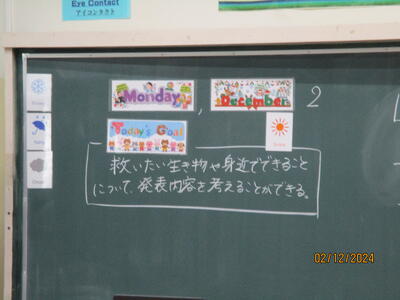 Eye Contact
アイコンタクト
Monday, December 2
Today's Goal
救いたい生き物や身近でできること
について、発表内容を考えることができる。
02/12/2024